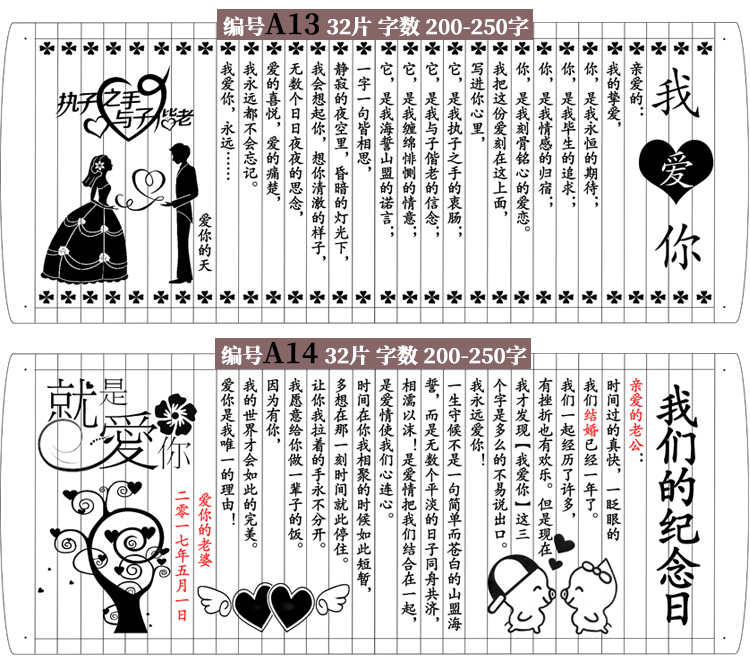 编号A13 32片 字数 200-250字
我爱你
亲爱的：
我的挚爱，
你，是我永恒的期待；
你，是我毕生的追求；
你，是我情感的归宿；
你，是我刻骨铭心的爱恋。
我把这份爱刻在这上面，
写进你心里，
它，是我执子之手的衷肠；
它，是我与子偕老的信念；
它，是我缠绵悱恻的情意；
它，是我海誓山盟的诺言；
一字一句皆相思，
静寂的夜空里，昏暗的灯光下，
我会想起你，想你清澈的样子，
无数个日日夜夜的思念，
爱的喜悦，爱的痛楚，
我永远都不会忘记。
我爱你，永远……
爱你的天
执子之手
与子偕老
编号A14 32片 字数 200-250字
我们的纪念日
亲爱的老公：
时间过的真快，一眨眼的
我们结婚已经一年了。
我们一起经历了许多，
有挫折也有欢乐。但是现在
我才发现【我爱你】这三
个字是多么的不易说出口。
我永远爱你！
一生守候不是一句简单而苍白的山盟海
誓，而是无数个平淡的日子同舟共济，
相濡以沫！是爱情把我们结合在一起，
是爱情使我们心连心。
时间在你我相聚的时候如此短暂，
多想在那一刻时间就此停住。
让你我拉着的手永不分开。
我愿意给你做一辈子的饭。
因为有你，
我的世界才会如此的完美。
爱你是我唯一的理由！
爱你的老婆
二零一七年五月一日
就是
爱你